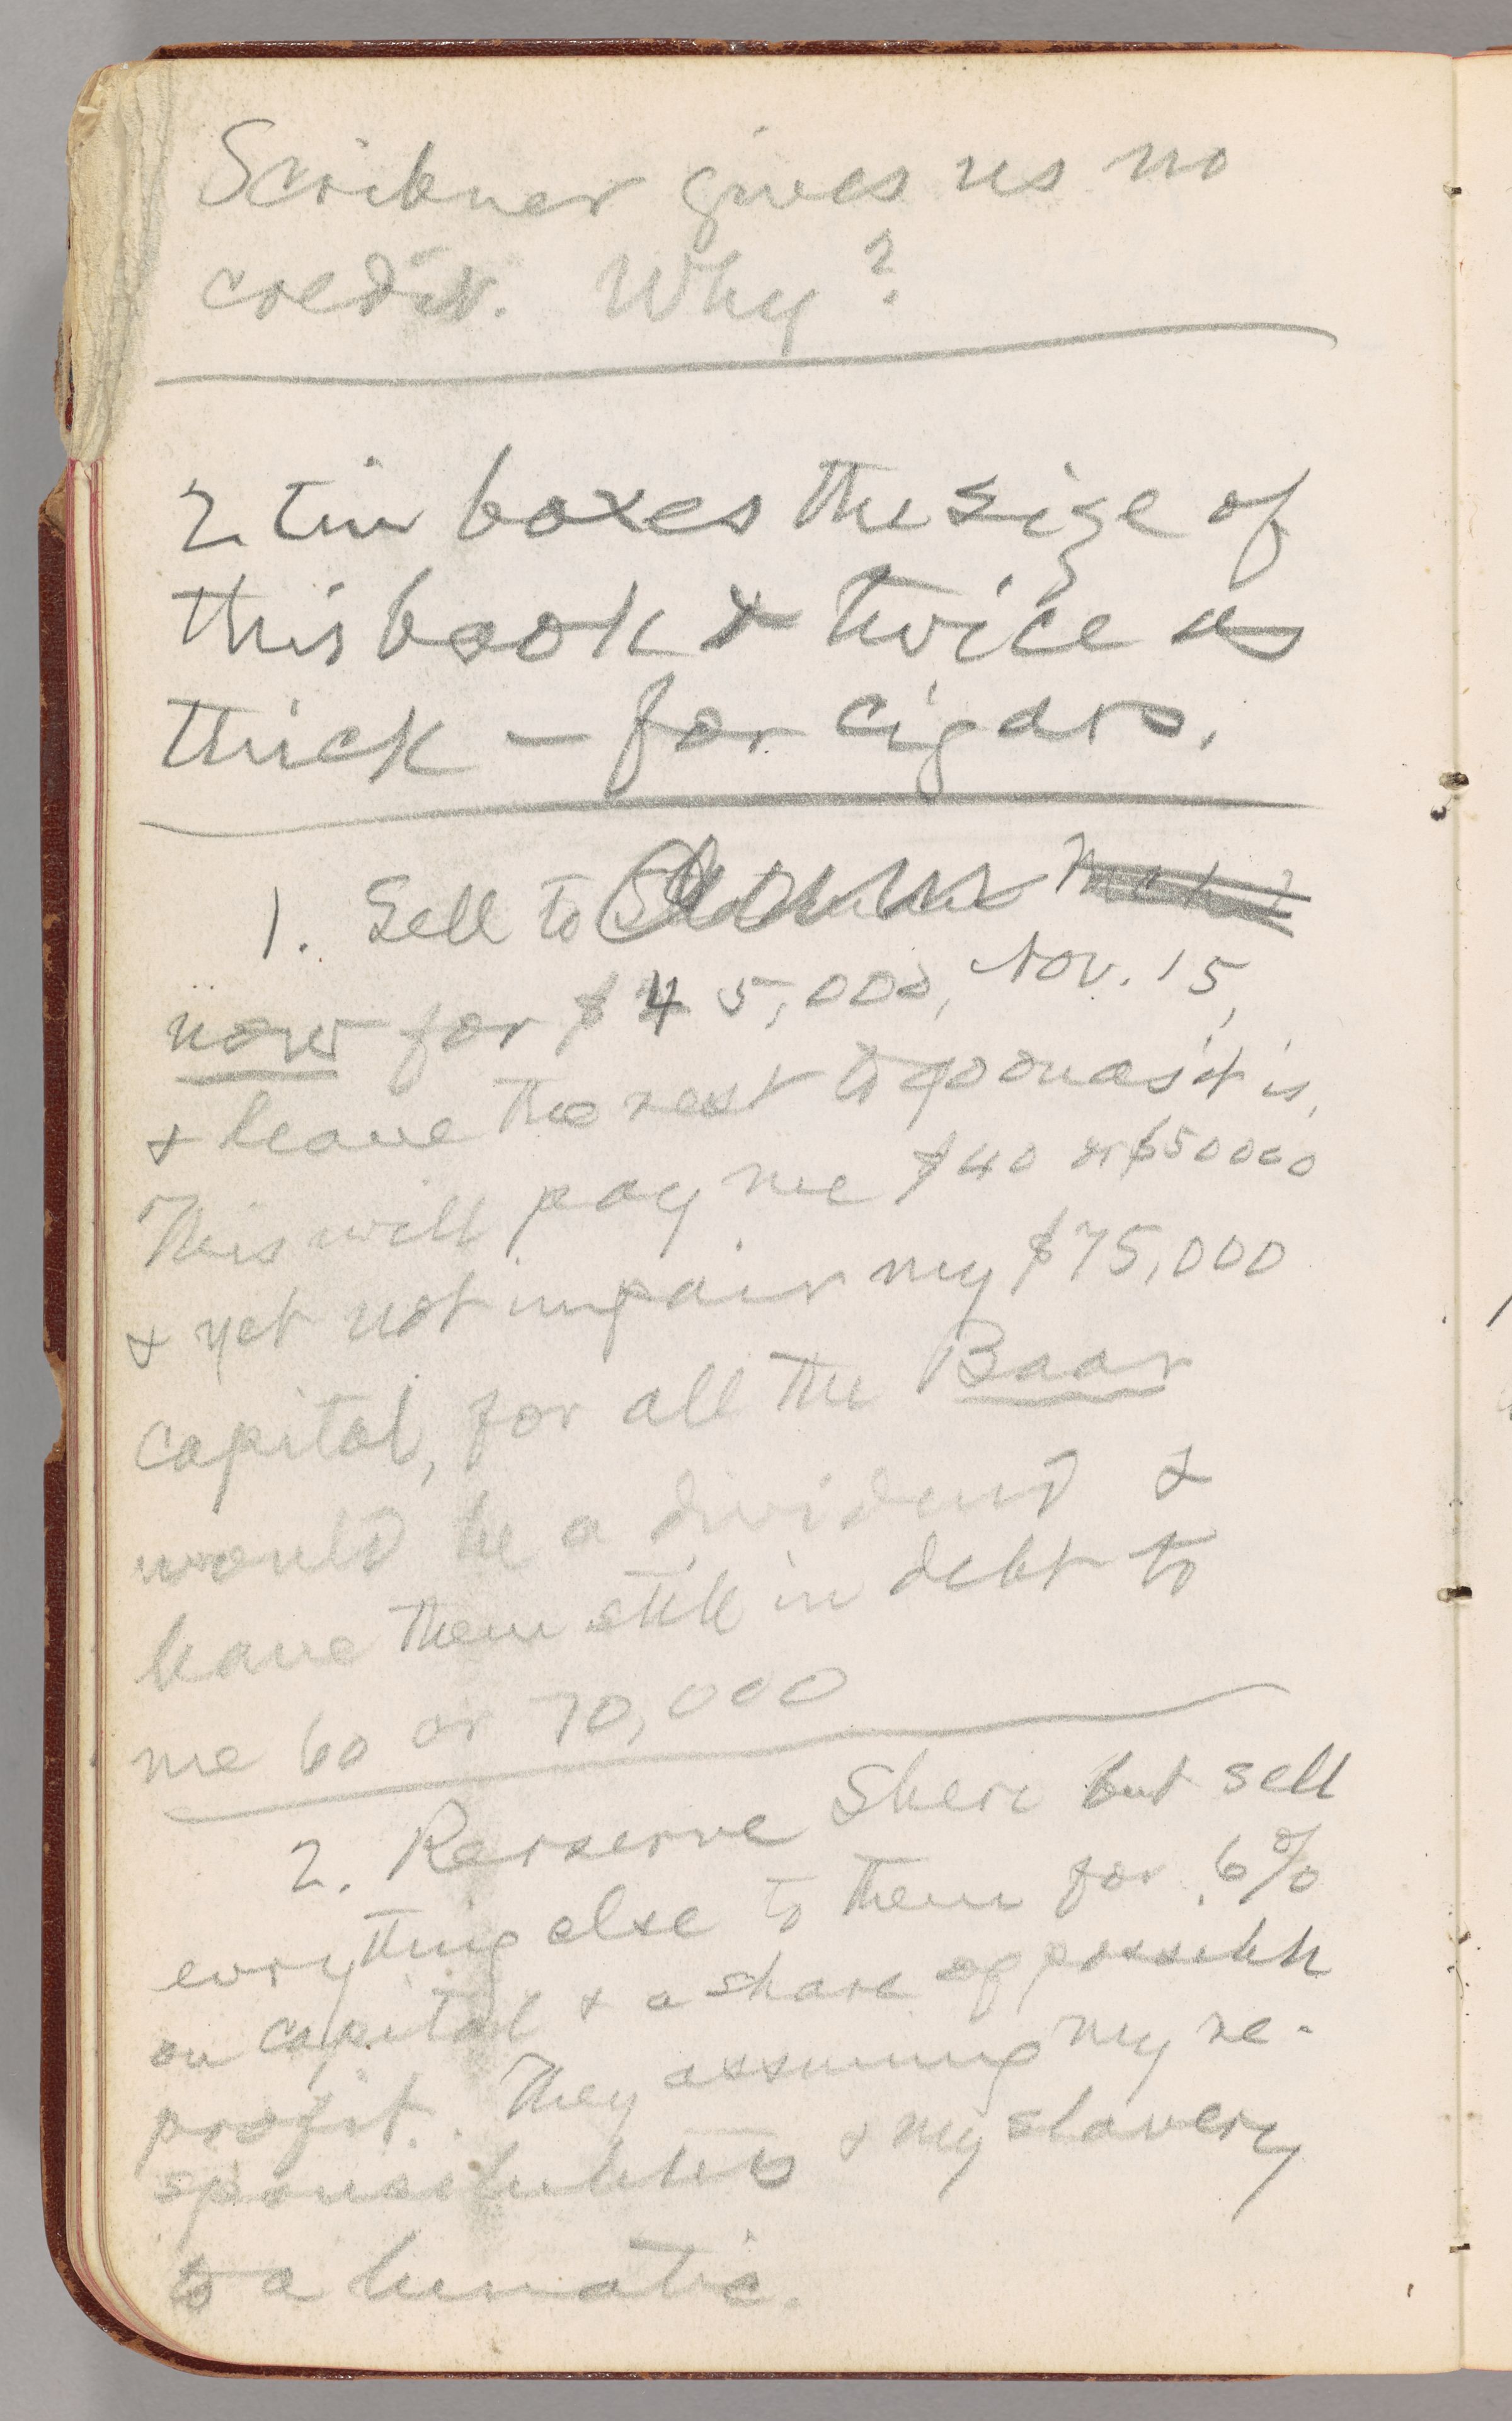 Scribner gives us no
credit. Why?
2 tin boxes the size of
this book & twice as
thick — for cigars.
1. Sell to
now for $45,000, Nov. 15,
& leave the rest to go on as it is.
This will pay me $40 or $50000
& yet not impair my $75,000
capital, for all the Baar
would be a dividend &
leave them still in debt to
me 60 or 70,000
2. Rerserve Sheri but sell
everything else to them for 6%
on capital & a share of possible
profit. They assuming my re-
sponsibilities & my slavery
to a lunatic.